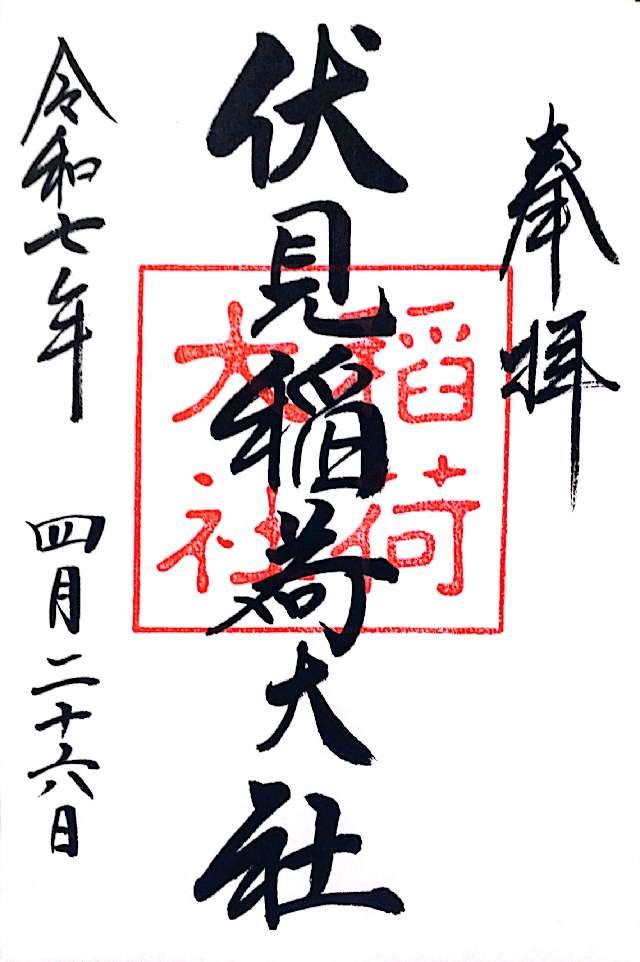 奉拝
伏見稲荷大社
稲荷
大社
令和七年 四月二十六日